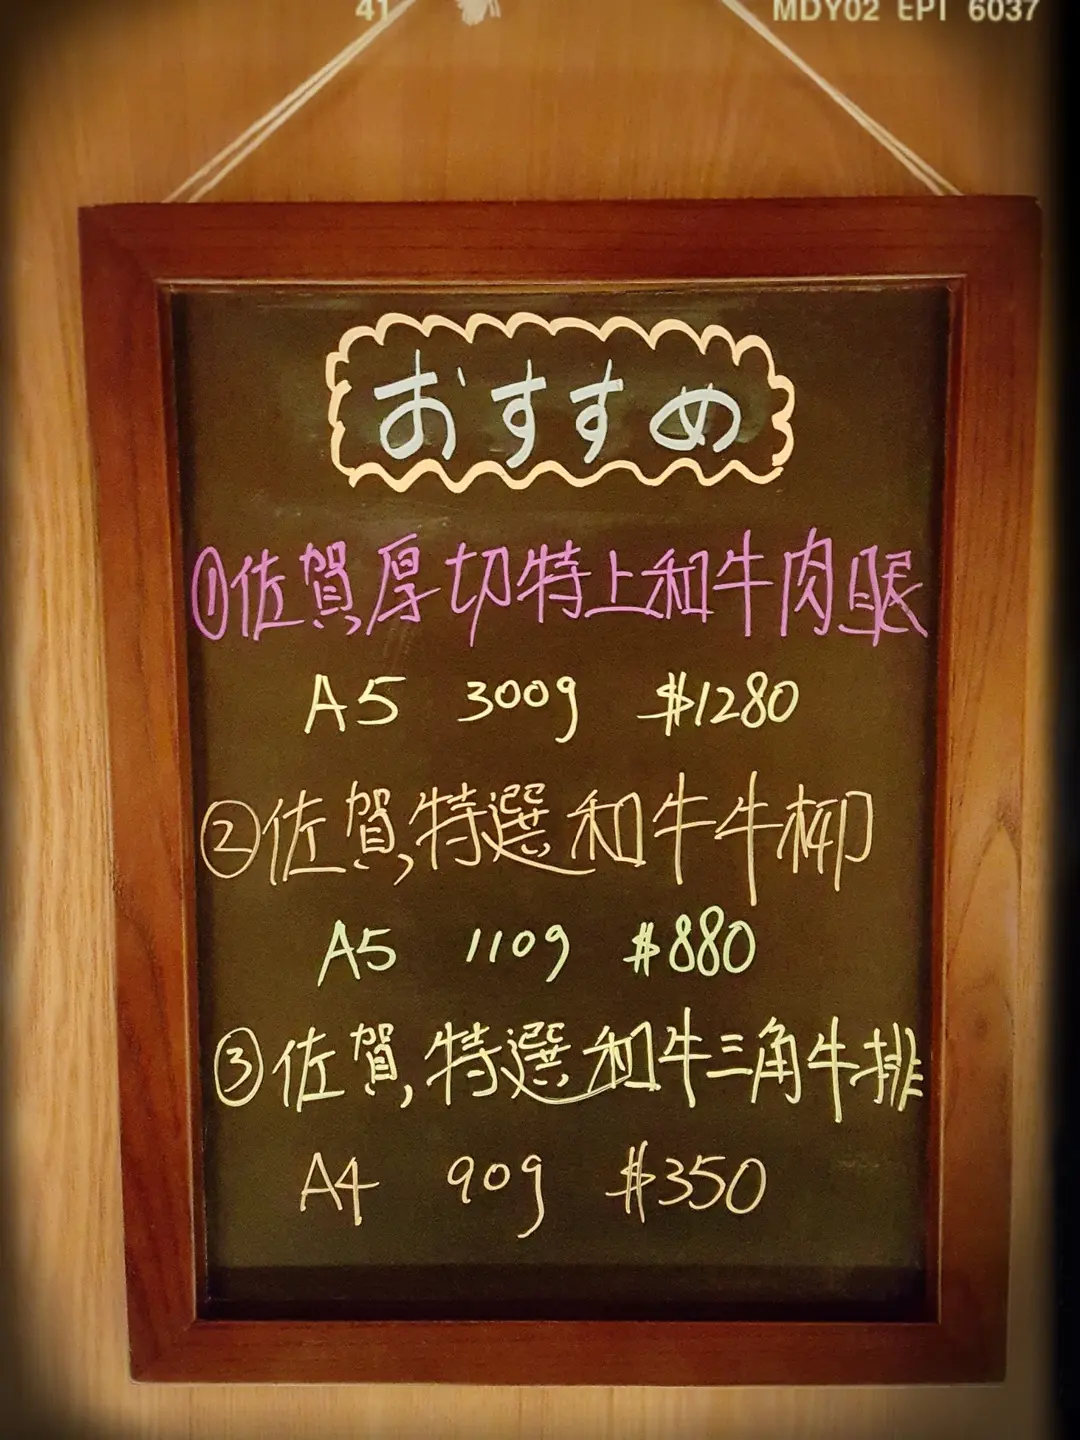 41
MDY02 EPI 6037
おすすめ
①佐賀厚切特上和牛肉眼
A5 300g $1280
②佐賀特選和牛牛柳
A5 110g $880
③佐賀特選和牛三角牛排
A4 90g $350